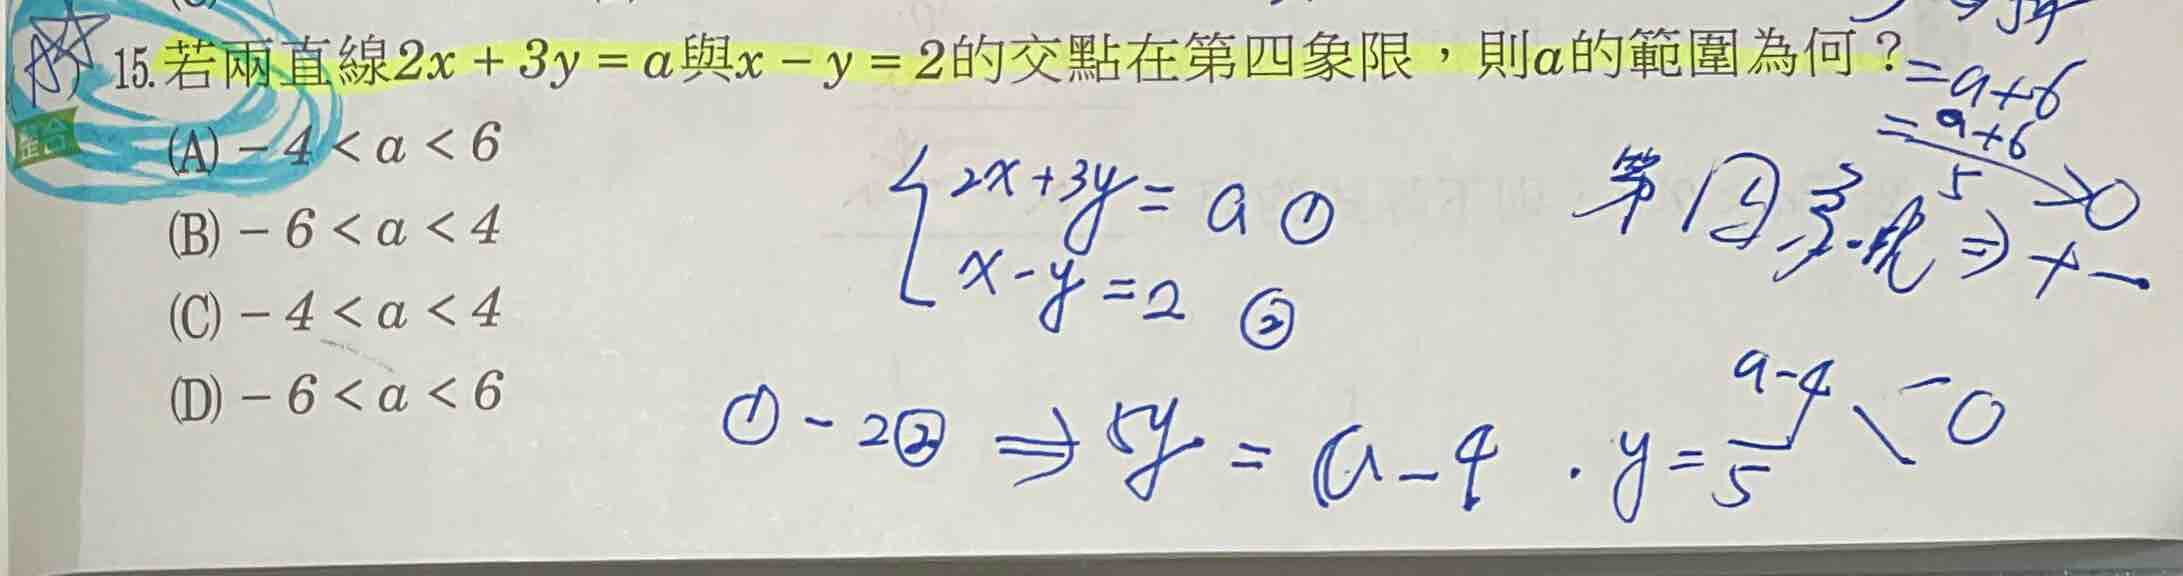 15. 若兩直線2x + 3y = a與x − y = 2的交點在第四象限，則a的範圍為何？
= a+6
= a+6/5 > 0
(A) − 4 < a < 6
(B) − 6 < a < 4
(C) − 4 < a < 4
(D) − 6 < a < 6
整合
{ 2x+3y = a ①
x-y = 2 ②
第四象限 ⇒ + −
① - 2② ⇒ 5y = a - 4 . y = a-4/5 < 0